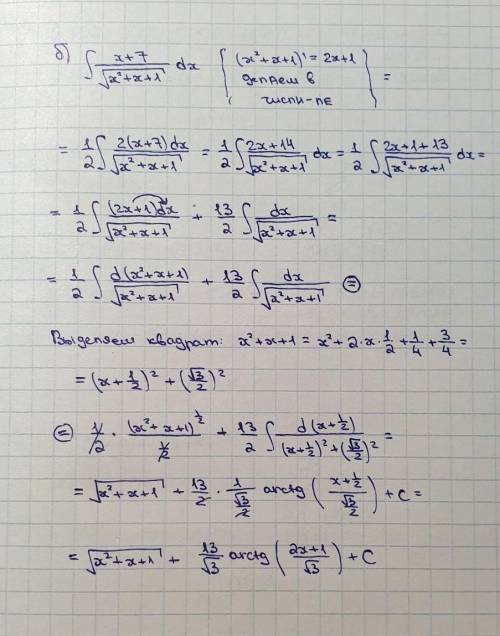 б) ∫ (x+7)/√(x²+x+1) dx { (x²+x+1)' = 2x+1 делаем в числи-ле } =
= 1/2 ∫ 2(x+7)dx/√(x²+x+1) = 1/2 ∫ (2x+14)/√(x²+x+1) dx = 1/2 ∫ (2x+1+13)/√(x²+x+1) dx =
= 1/2 ∫ (2x+1)dx/√(x²+x+1) + 13/2 ∫ dx/√(x²+x+1) =
= 1/2 ∫ d(x²+x+1)/√(x²+x+1) + 13/2 ∫ dx/√(x²+x+1) ⊜
Выделяем квадрат: x²+x+1 = x²+2·x·1/2+1/4+3/4 =
= (x+1/2)² + (√3/2)²
⊜ 1/2 · (x²+x+1)^(1/2)/(1/2) + 13/2 ∫ d(x+1/2)/((x+1/2)²+(√3/2)²) =
= √(x²+x+1) + 13/2 · 1/(√3/2) arctg ((x+1/2)/(√3/2)) + C =
= √(x²+x+1) + 13/√3 arctg ((2x+1)/√3) + C